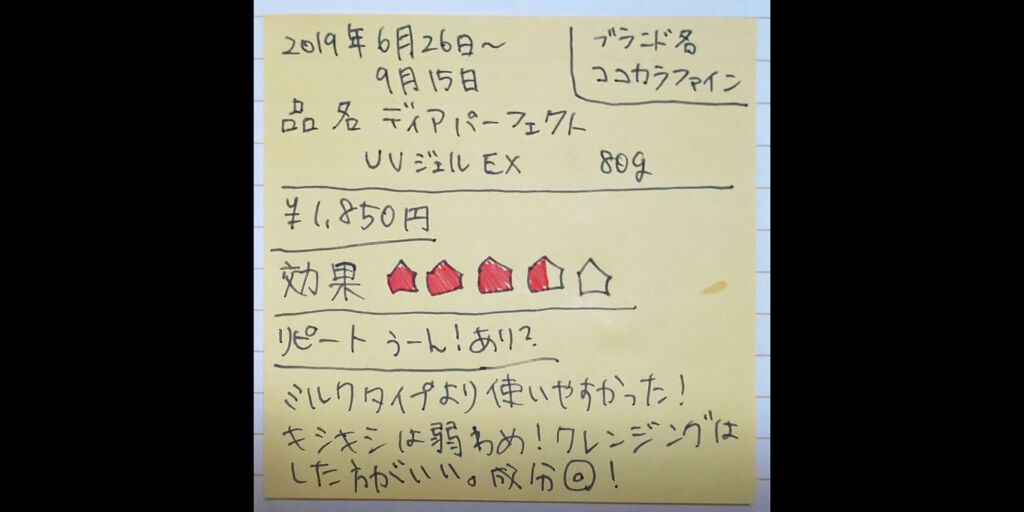 2019年6月26日～
9月15日
ブランド名
ココカラファイン
品名 ディアパーフェクト
UVジェルEX 80g
¥1,850円
効果
リピート うーん!あり?
ミルクタイプより使いやすかった!
キシキシは弱わめ!クレンジングは
した方がいい。成分◎!